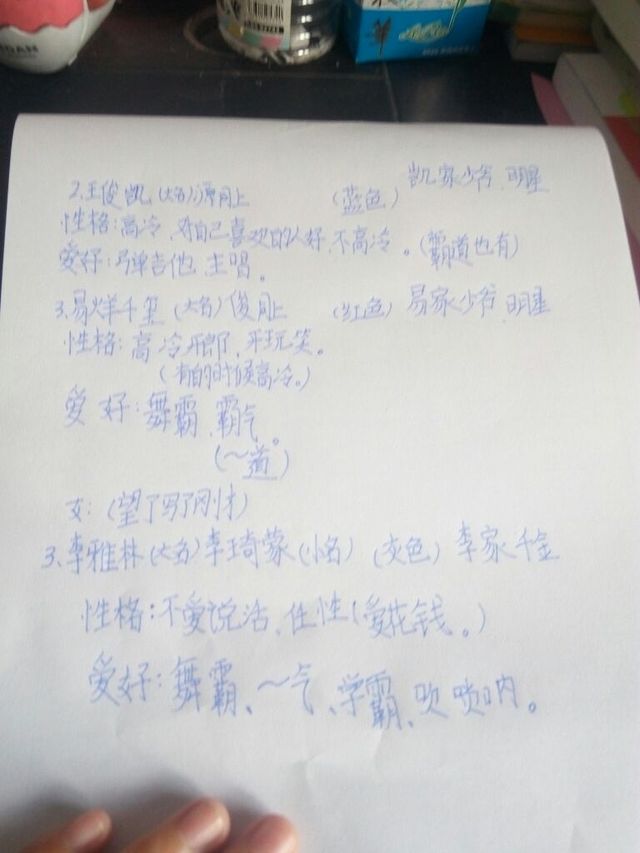 DAN
凯家少爷、明星
2、王俊凯（大名）源月上 （蓝色）
性格：高冷，对自己喜欢的人好，不高冷。（霸道也有）
爱好：弹吉他、主唱。
3、易烊千玺（大名）俊月上 （红色） 易家少爷、明星
性格：高冷开郎、开玩笑。
（有的时候高冷。）
爱好：舞霸、霸气。
（～道）
女：（望了写了刚才）
3、李雅林（大名）李琦蒙（小名）（灰色）李家千金
性格：不爱说活、任性（爱花钱。）
爱好：舞霸、～气、学霸、吹喷呐。